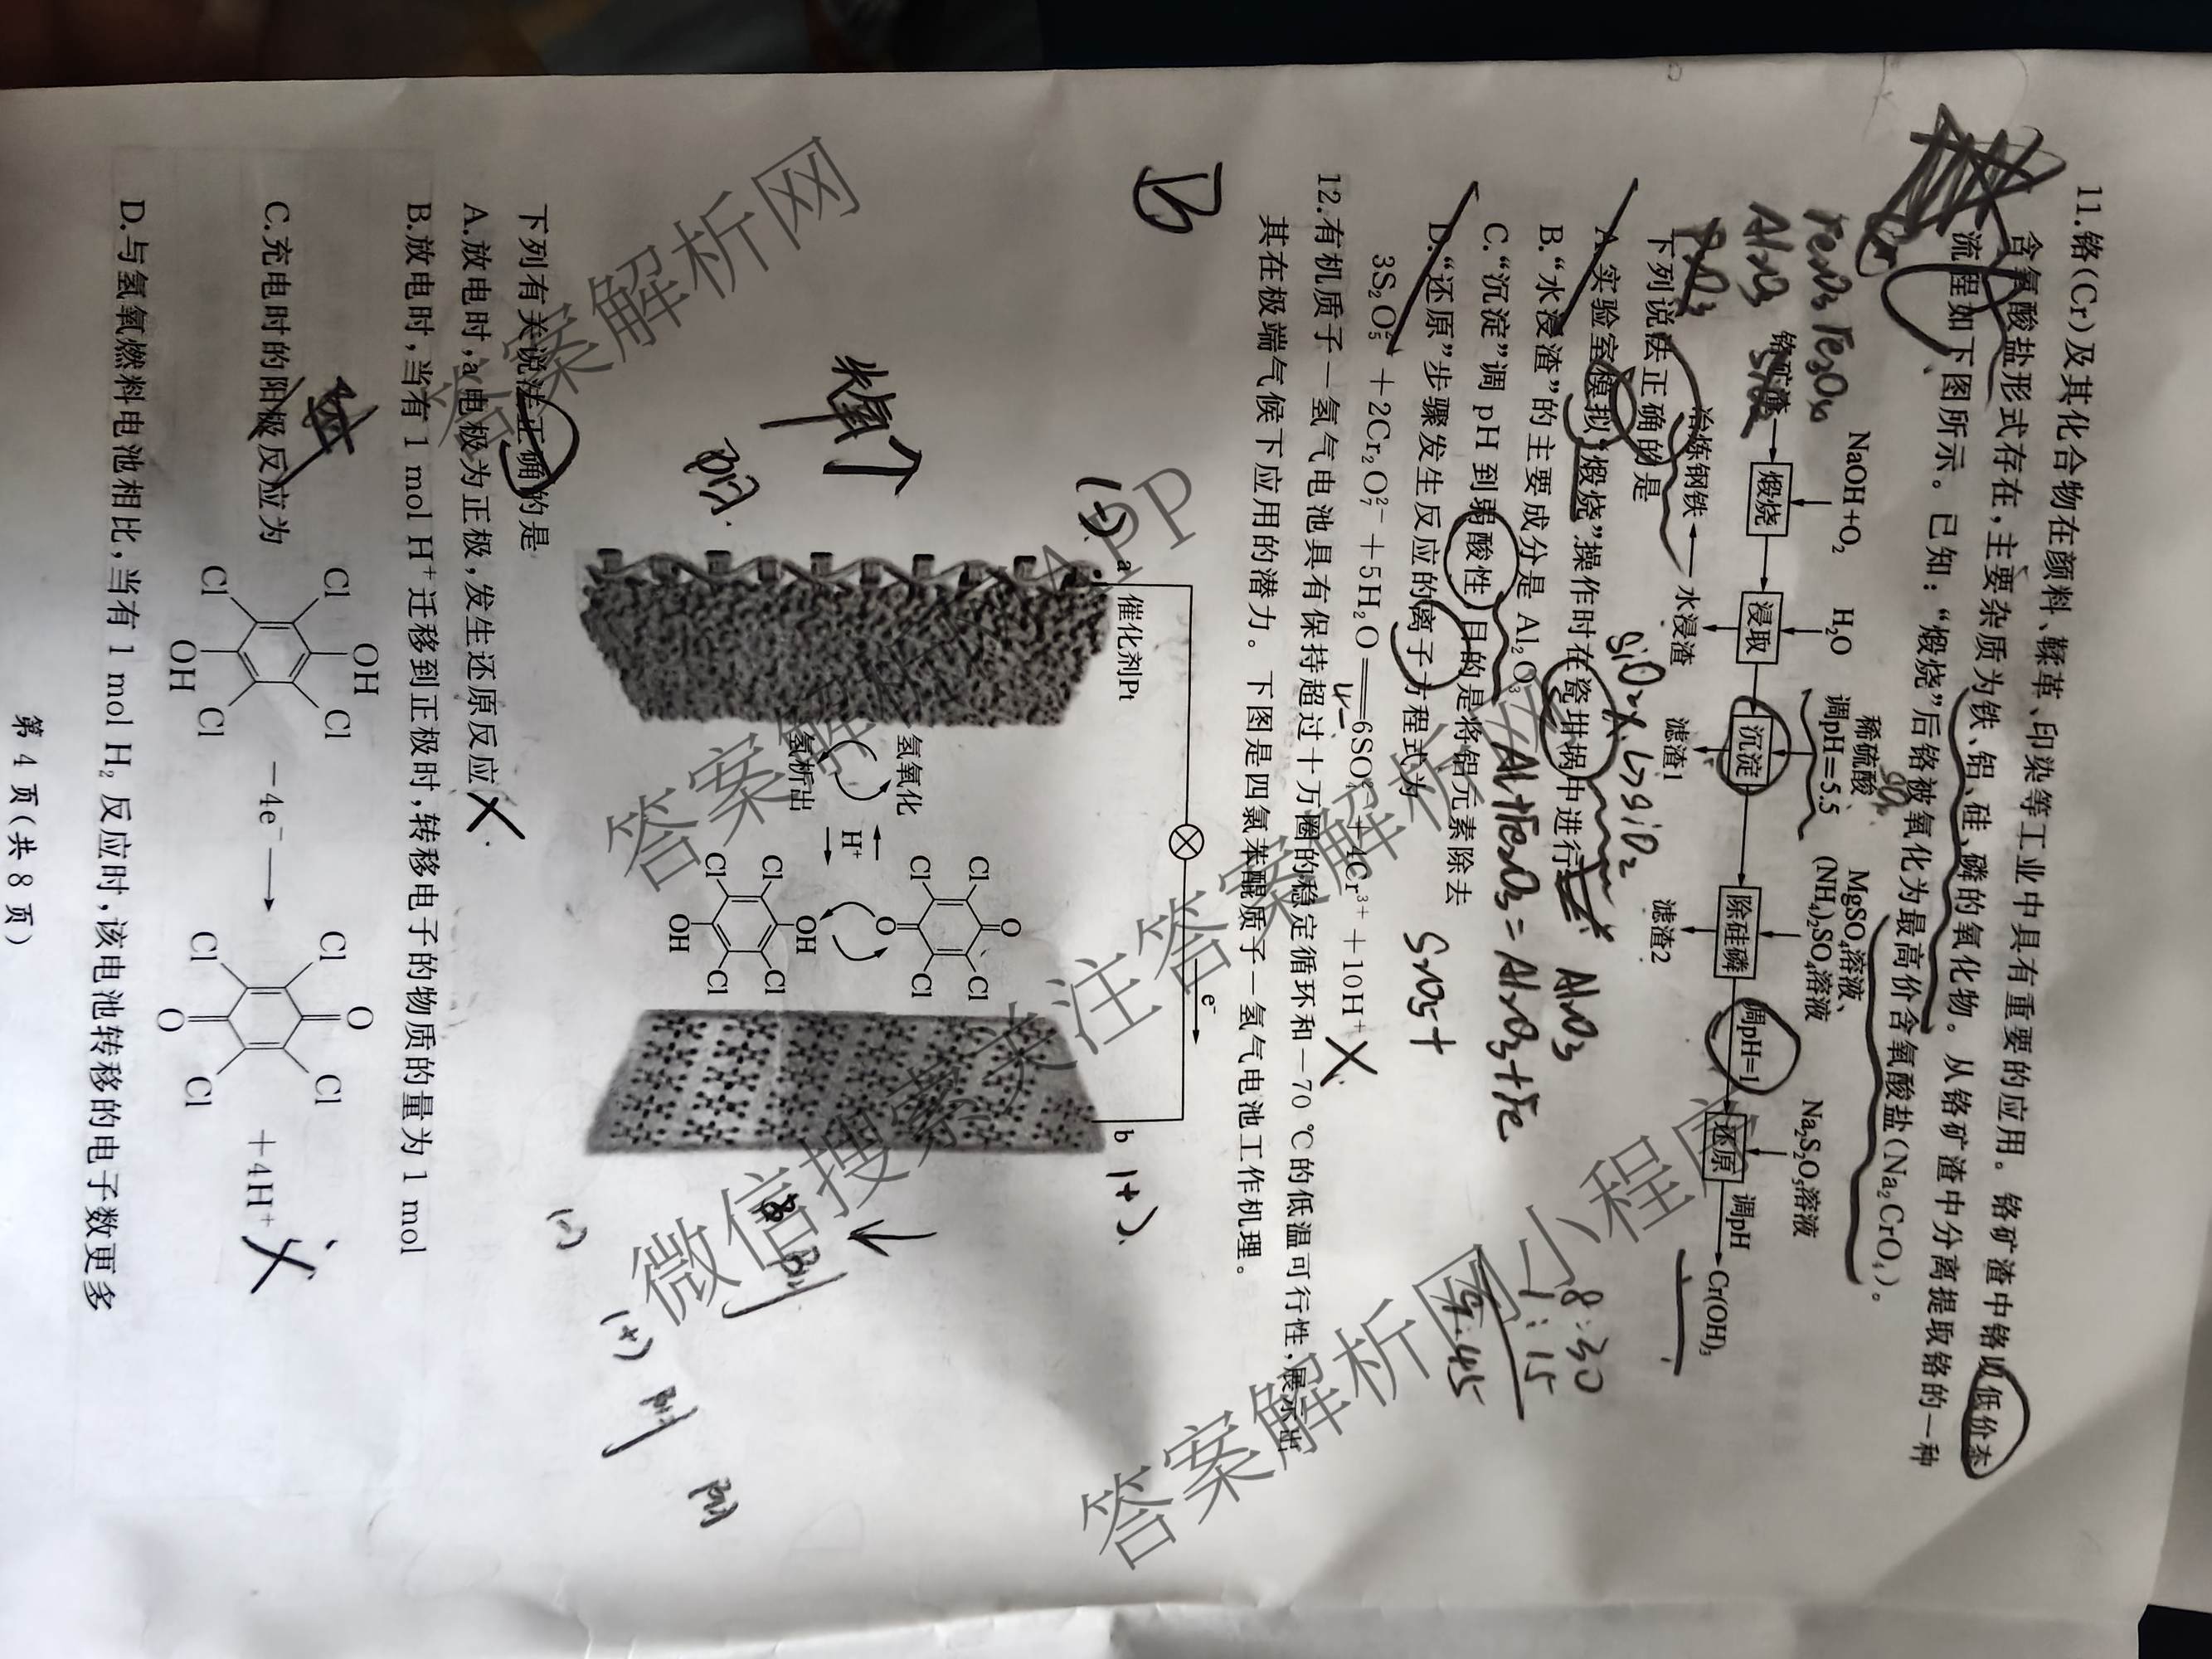 11.铬(Cr)及其化合物在颜料、鞣革、印染等工业中具有重要的应用。铬矿渣中铬以低价态
含氧酸盐形式存在,主要杂质为铁、铝、硅、磷的氧化物。从铬矿渣中分离提取铬的一种
流程如下图所示。已知:“煅烧”后铬被氧化为最高价含氧酸盐(Na₂CrO₄)。
NaOH+O₂
H₂O
稀硫酸
调pH=5.5
MgSO₄溶液、
(NH₄)₂SO₄溶液
Na₂S₂O₅溶液
铬矿渣
煅烧
浸取
沉淀
除硅磷
调pH=1
还原
调pH
Cr(OH)₃
冶炼钢铁
水浸渣
滤渣1
滤渣2
Al₂O₃
SiO₂
8:30
1:15
9:45
下列说法正确的是
A.实验室模拟“煅烧”操作时在瓷坩埚中进行
B.“水浸渣”的主要成分是 Al₂O₃
Al+Fe₂O₃=Al₂O₃+Fe
C.“沉淀”调 pH 到弱酸性目的是将铝元素除去
D.“还原”步骤发生反应的离子方程式为
3S₂O₅²⁻+2Cr₂O₇²⁻+5H₂O══6SO₄²⁻+4Cr³⁺+10H⁺
12.有机质子—氢气电池具有保持超过十万圈的稳定循环和−70 ℃的低温可行性,展示出
其在极端气候下应用的潜力。下图是四氯苯醌质子—氢气电池工作机理。
B
e⁻
(-)
a
催化剂Pt
b
(+)
氢氧化
氢析出
H⁺
O
Cl
Cl
Cl
Cl
O
OH
Cl
Cl
Cl
Cl
OH
(-)
(+)
下列有关说法正确的是
A.放电时,a 电极为正极,发生还原反应
B.放电时,当有 1 mol H⁺迁移到正极时,转移电子的物质的量为 1 mol
C.充电时的阳极反应为
OH
Cl
Cl
Cl
Cl
OH
−4e⁻
O
Cl
Cl
Cl
Cl
O
+4H⁺
D.与氢氧燃料电池相比,当有 1 mol H₂ 反应时,该电池转移的电子数更多
第 4 页(共 8 页)
答案解析网
答案解析网APP
微信搜索关注答案解析网
答案解析网小程序